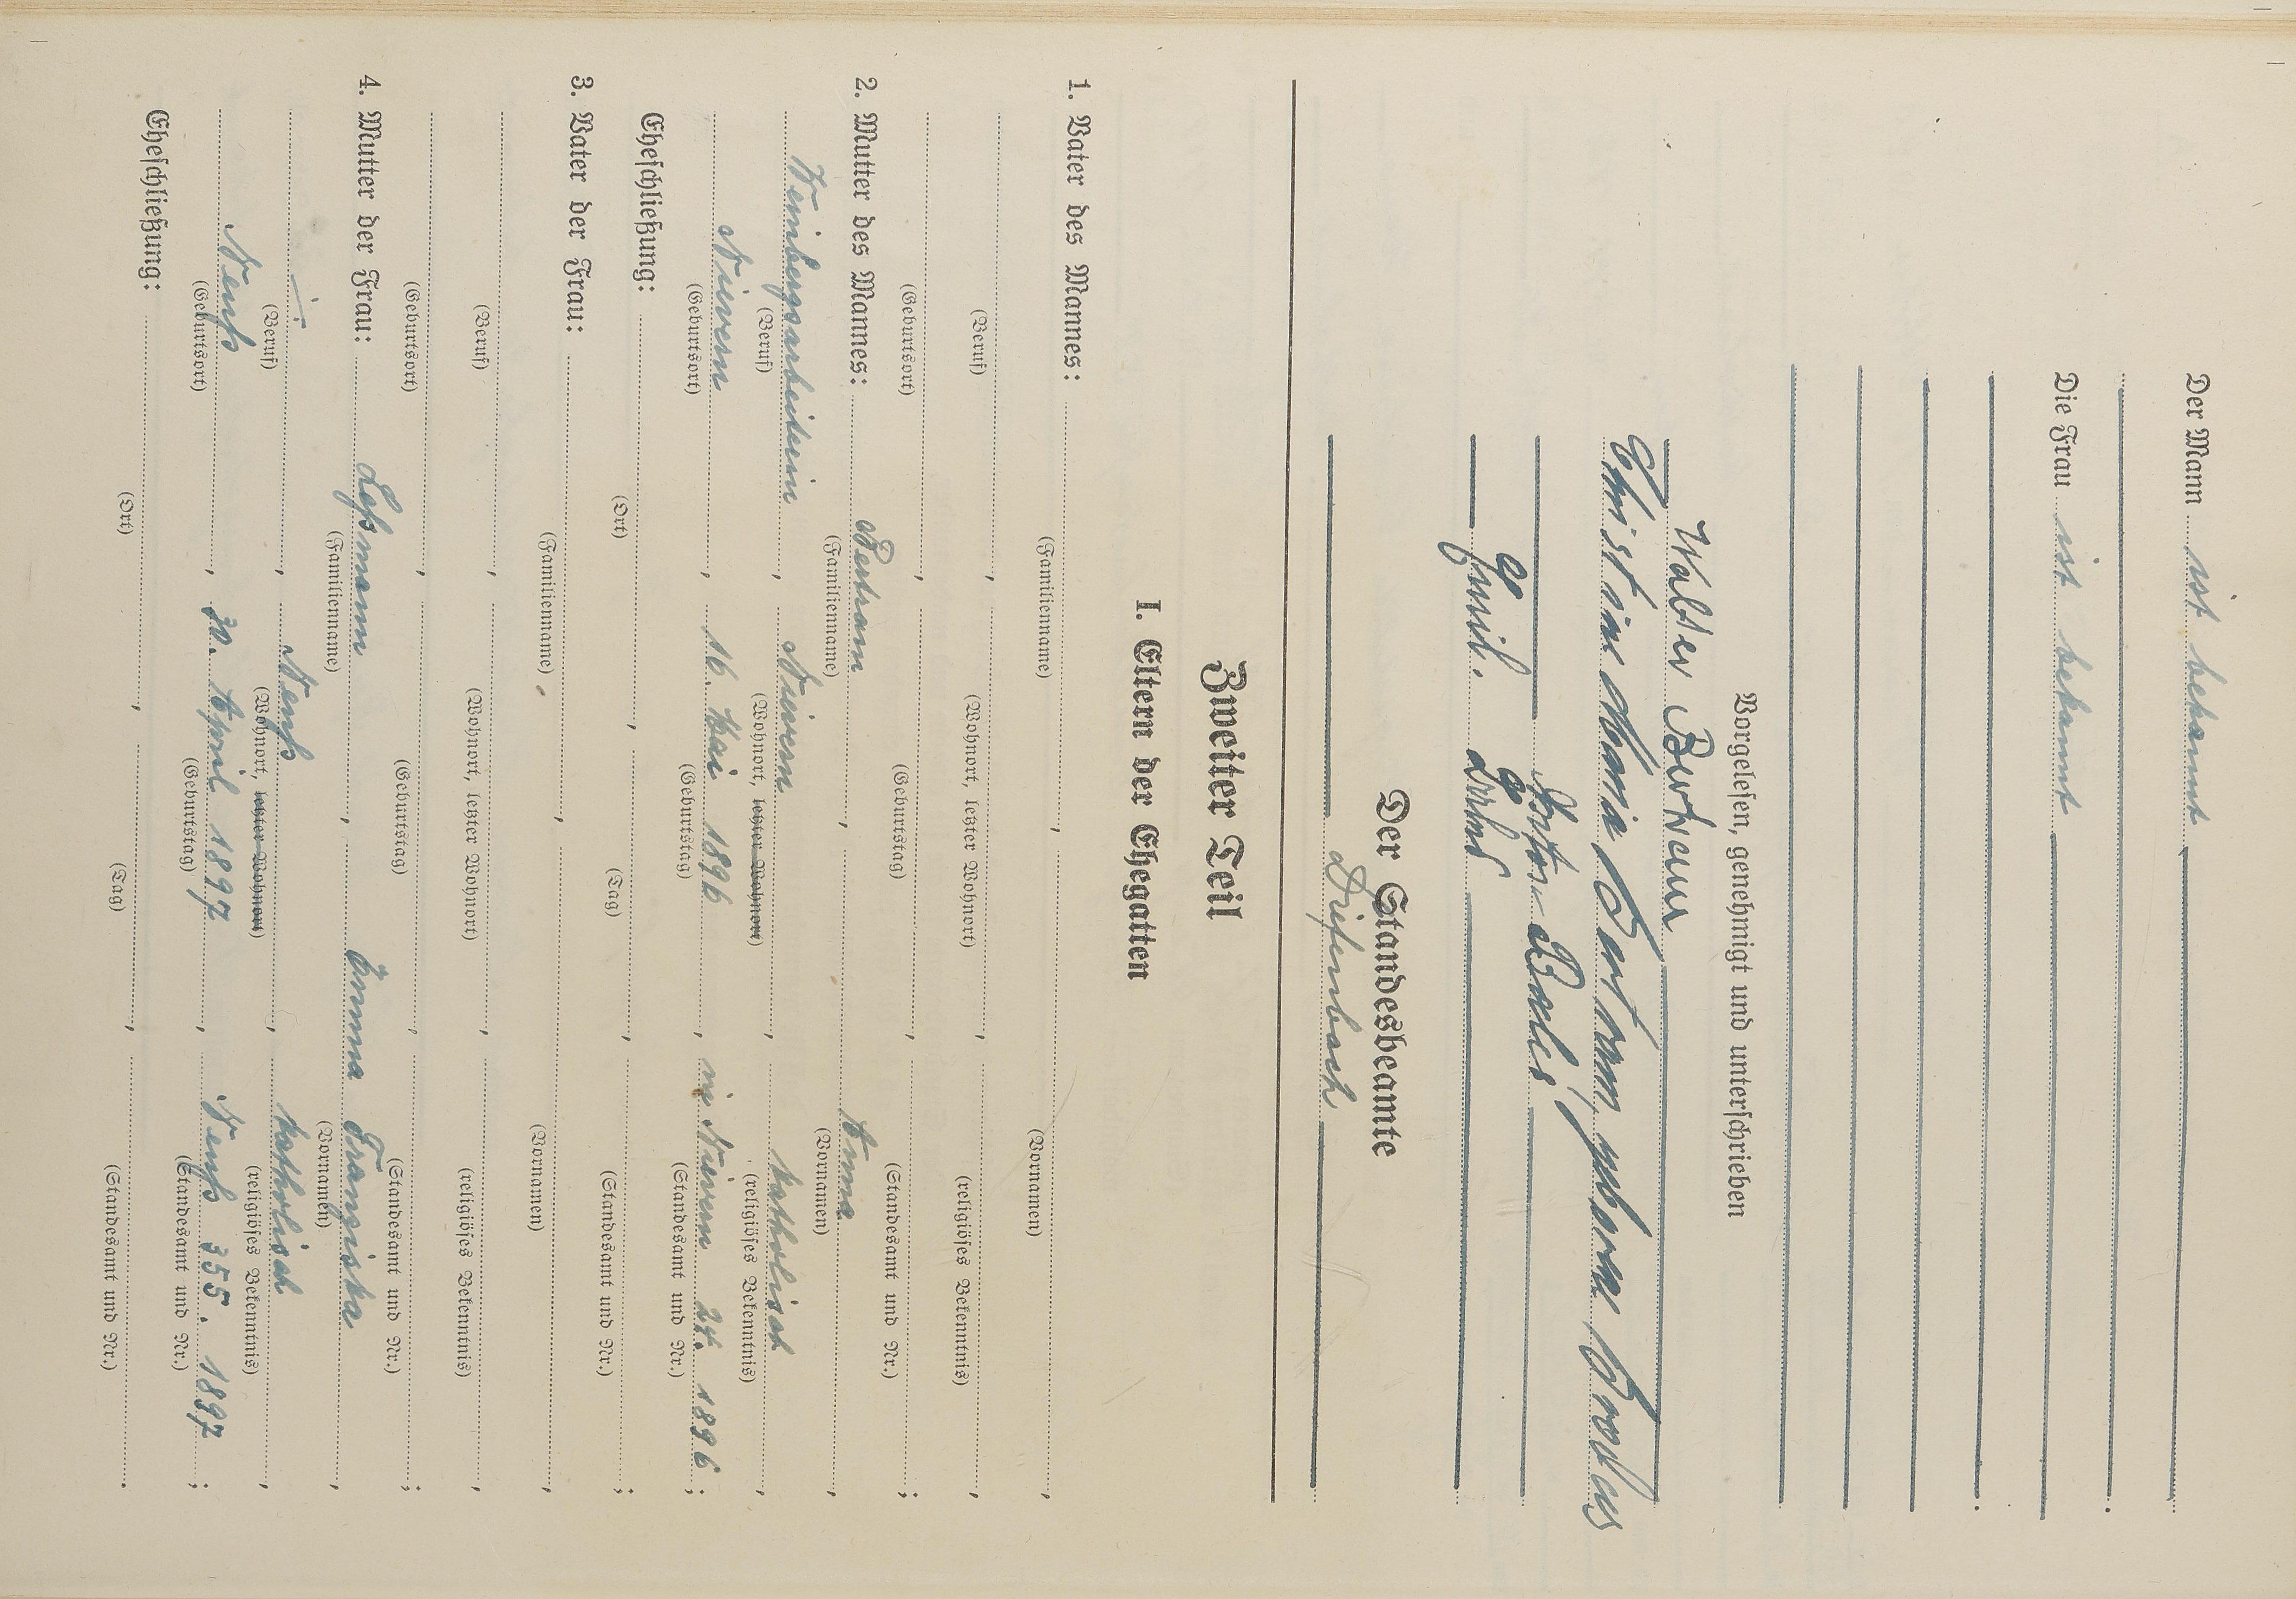 Der Mann ist bekannt
Die Frau ist bekannt
Vorgelesen, genehmigt und unterschrieben
Walter Bertram
Christine Maria Bertram, geborene
Anton
Emil
Der Standesbeamte
Diefenbach
Zweiter Teil
I. Eltern der Ehegatten
1. Vater des Mannes:
(Familienname) (Vornamen)
(Beruf) (Wohnort, letzter Wohnort) (religiöses Bekenntnis)
(Geburtsort) (Geburtstag) (Standesamt und Nr.)
2. Mutter des Mannes: Bertram, Anna,
(Familienname) (Vornamen)
Weinbergsarbeiterin, Nievern, katholisch,
(Beruf) (Wohnort, letzter Wohnort) (religiöses Bekenntnis)
Nievern, 16. Mai 1896, in Nievern 24. 1896;
(Geburtsort) (Geburtstag) (Standesamt und Nr.)
Eheschließung:
(Ort) (Tag) (Standesamt und Nr.)
3. Vater der Frau:
(Familienname) (Vornamen)
(Beruf) (Wohnort, letzter Wohnort) (religiöses Bekenntnis)
(Geburtsort) (Geburtstag) (Standesamt und Nr.)
4. Mutter der Frau: Leßmann, Emma Franziska,
(Familienname) (Vornamen)
Neuß, katholisch,
(Beruf) (Wohnort, letzter Wohnort) (religiöses Bekenntnis)
Neuß, 30. April 1897, Neuß 355. 1897;
(Geburtsort) (Geburtstag) (Standesamt und Nr.)
Eheschließung:
(Ort) (Tag) (Standesamt und Nr.)